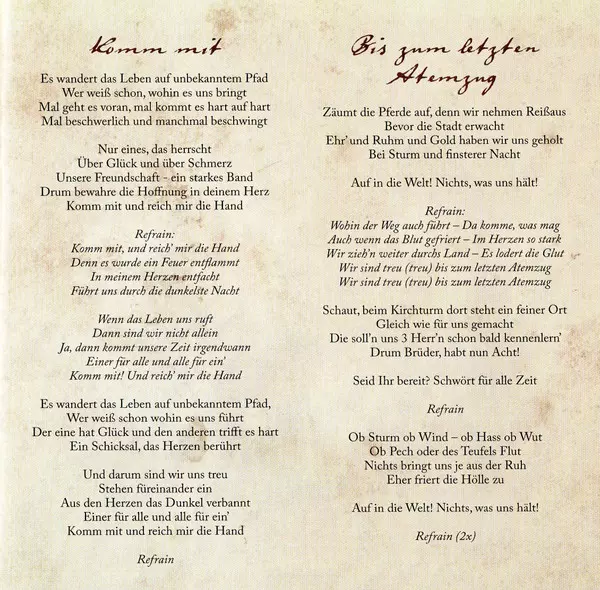 Komm mit
Es wandert das Leben auf unbekanntem Pfad
Wer weiß schon, wohin es uns bringt
Mal geht es voran, mal kommt es hart auf hart
Mal beschwerlich und manchmal beschwingt
Nur eines, das herrscht
Über Glück und über Schmerz
Unsere Freundschaft - ein starkes Band
Drum bewahre die Hoffnung in deinem Herz
Komm mit und reich mir die Hand
Refrain:
Komm mit, und reich' mir die Hand
Denn es wurde ein Feuer entflammt
In meinem Herzen entfacht
Führt uns durch die dunkelste Nacht
Wenn das Leben uns ruft
Dann sind wir nicht allein
Ja, dann kommt unsere Zeit irgendwann
Einer für alle und alle für ein'
Komm mit! Und reich' mir die Hand
Es wandert das Leben auf unbekanntem Pfad,
Wer weiß schon wohin es uns führt
Der eine hat Glück und den anderen trifft es hart
Ein Schicksal, das Herzen berührt
Und darum sind wir uns treu
Stehen füreinander ein
Aus den Herzen das Dunkel verbannt
Einer für alle und alle für ein'
Komm mit und reich mir die Hand
Refrain
Bis zum letzten
Atemzug
Zäumt die Pferde auf, denn wir nehmen Reißaus
Bevor die Stadt erwacht
Ehr' und Ruhm und Gold haben wir uns geholt
Bei Sturm und finsterer Nacht
Auf in die Welt! Nichts, was uns hält!
Refrain:
Wohin der Weg auch führt – Da komme, was mag
Auch wenn das Blut gefriert – Im Herzen so stark
Wir zieh'n weiter durchs Land – Es lodert die Glut
Wir sind treu (treu) bis zum letzten Atemzug
Wir sind treu (treu) bis zum letzten Atemzug
Schaut, beim Kirchturm dort steht ein feiner Ort
Gleich wie für uns gemacht
Die soll'n uns 3 Herr'n schon bald kennenlern'
Drum Brüder, habt nun Acht!
Seid Ihr bereit? Schwört für alle Zeit
Refrain
Ob Sturm ob Wind – ob Hass ob Wut
Ob Pech oder des Teufels Flut
Nichts bringt uns je aus der Ruh
Eher friert die Hölle zu
Auf in die Welt! Nichts, was uns hält!
Refrain (2x)